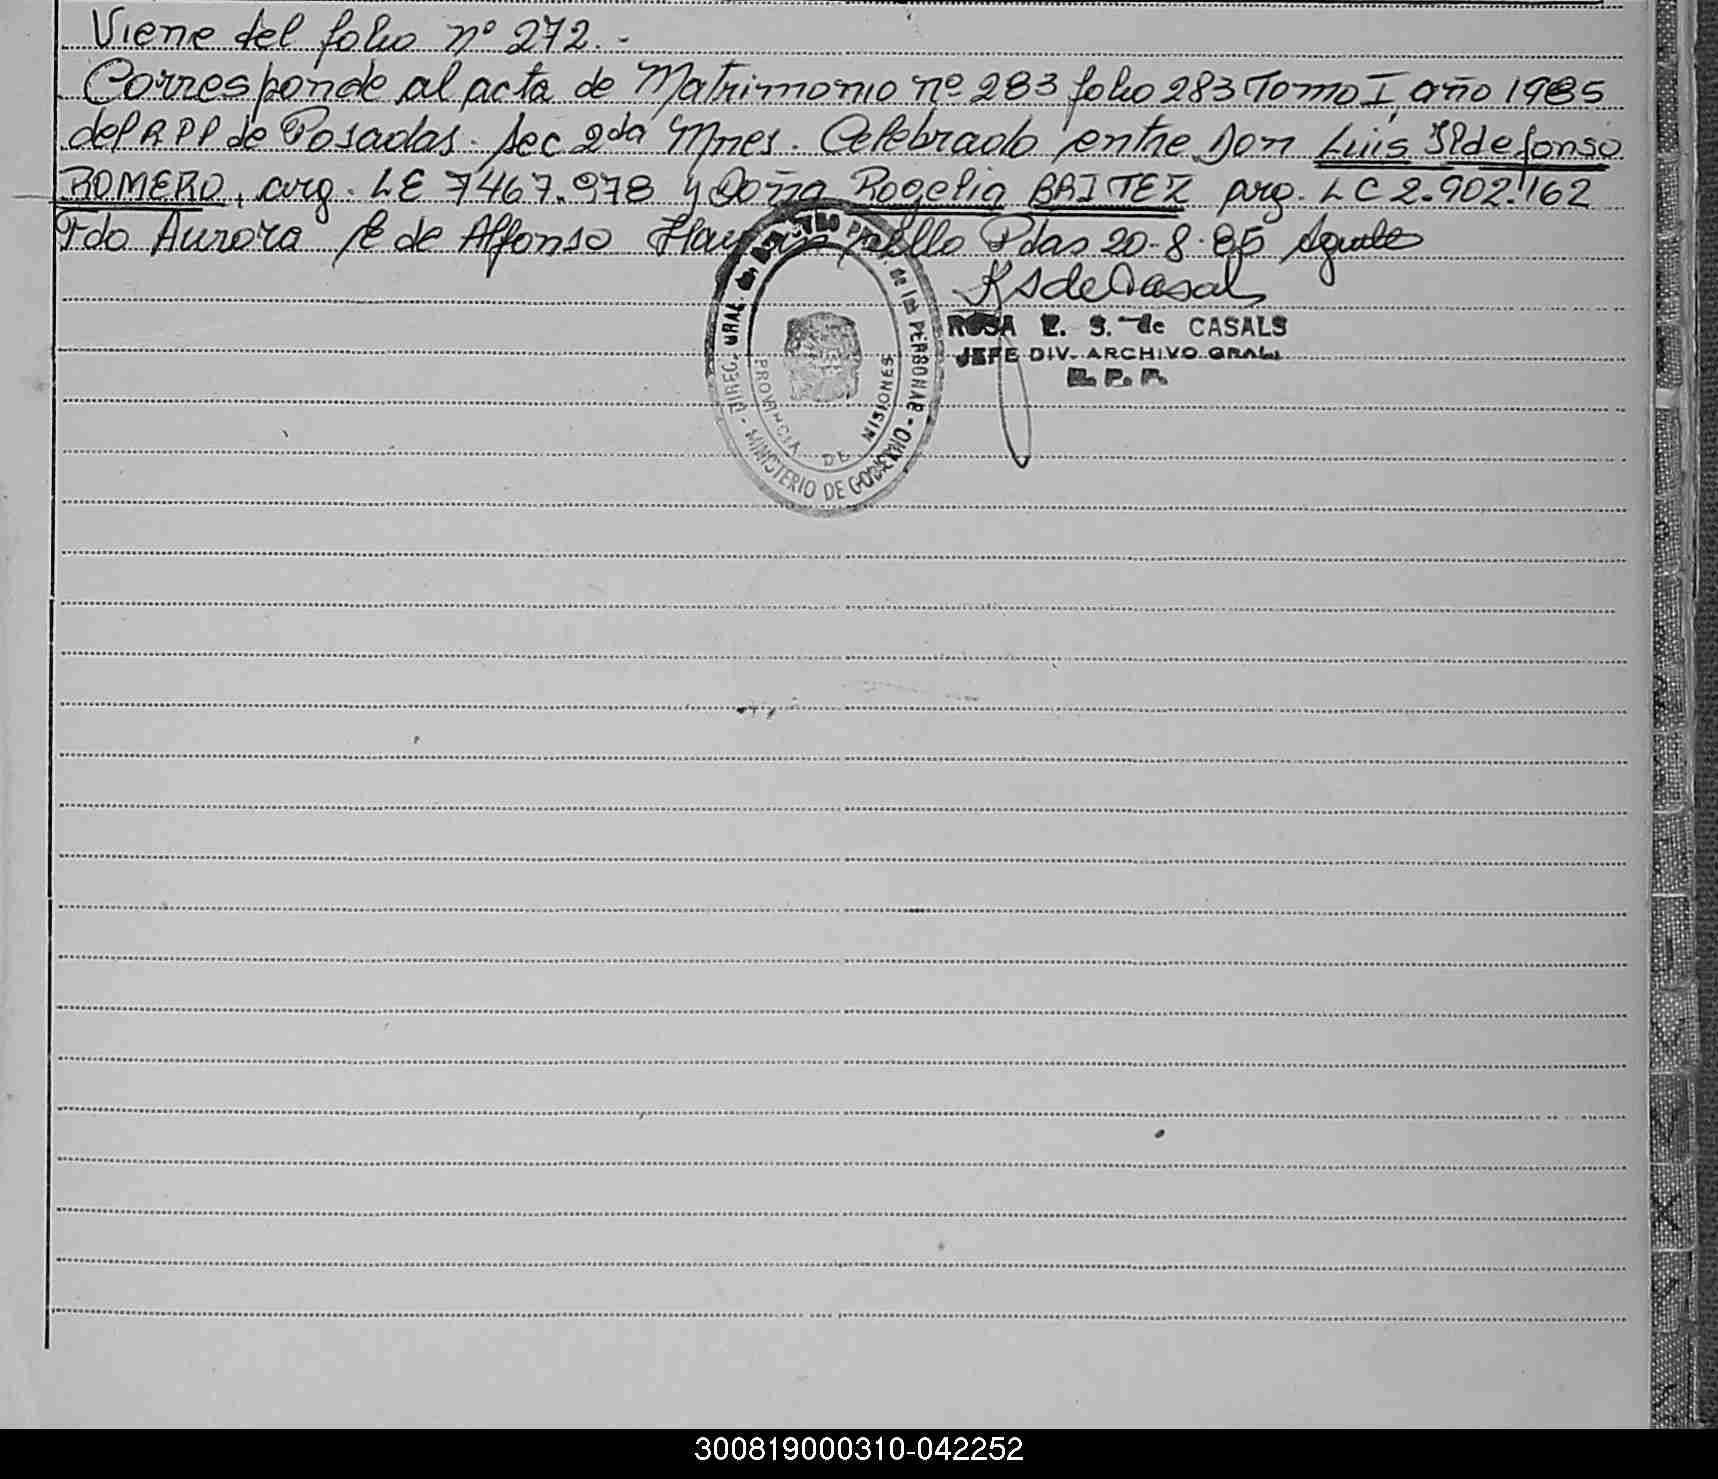 Viene del folio nº 272.-
Corresponde al acta de Matrimonio nº 283 folio 283 Tomo I, año 1985
del RPP de Posadas. Sec 2da Mnes. Celebrado entre Don Luis Ildefonso
ROMERO, arg. LE 7467.978 y Doña Rogelia BRITEZ arg. LC 2.902.162
Fdo Aurora de Alfonso Hay sello Pdas 20-8-85
RSdeCasals
ROSA E. S. de CASALS
JEFE DIV. ARCHIVO GRAL.
R. P. P.
DIREC. GRAL. de REGISTRO PROV. de las PERSONAS - MINISTERIO DE GOBIERNO -
PROVINCIA DE MISIONES
300819000310-042252